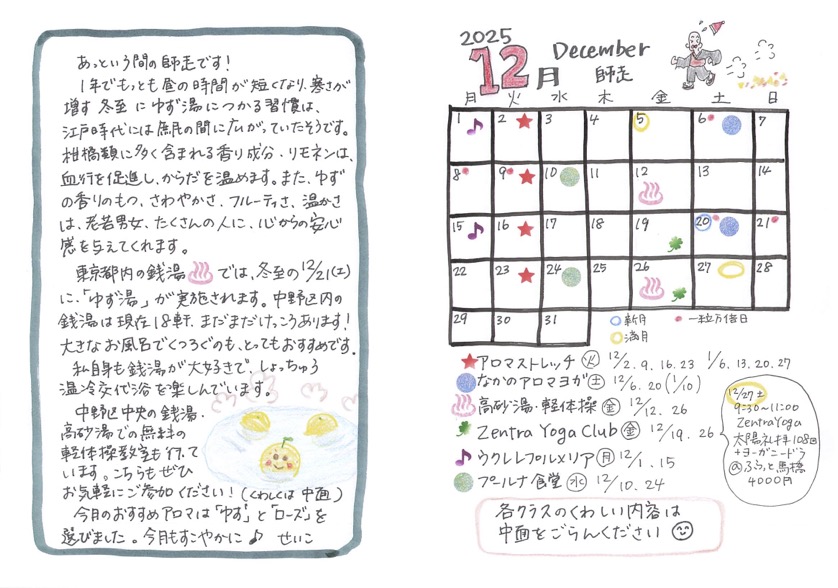 あっという間の師走です!
1年でもっとも昼の時間が短くなり、寒さが
増す冬至にゆず湯につかる習慣は、
江戸時代には庶民の間に広がっていたそうです。
柑橘類に多く含まれる香り成分、リモネンは、
血行を促進し、からだを温めます。また、ゆず
の香りのもつ、さわやかさ、フルーティさ、温かさ
は、老若男女、たくさんの人に、心からの安心
感を与えてくれます。
東京都内の銭湯♨では、冬至の12/21(土)
に、「ゆず湯」が実施されます。中野区内の
銭湯は現在18軒、まだまだけっこうあります!
大きなお風呂でくつろぐのも、とってもおすすめです。
私自身も銭湯が大好きで、しょっちゅう
温冷交代浴を楽しんでいます。
中野区中央の銭湯、
高砂湯での無料の
軽体操教室も行って
います。こちらもぜひ
お気軽にご参加ください!(くわしくは中面)
今月のおすすめアロマは「ゆず」と「ローズ」を
選びました。今月もすこやかに♪ せいこ
2025
12月 December
師走
月 火 水 木 金 土 日
1 2 3 4 5 6 7
8 9 10 11 12 13 14
15 16 17 18 19 20 21
22 23 24 25 26 27 28
29 30 31
新月 一粒万倍日
満月
★アロマストレッチ(火) 12/2.9.16.23 1/6.13.20.27
なかのアロマヨガ(土) 12/6.20(1/10)
♨高砂湯・軽体操(金) 12/12.26
Zentra Yoga Club(金) 12/19.26
♪ウクレレプルメリア(月) 12/1.15
プールナ食堂(水) 12/10.24
12/27土
9:30〜11:00
Zentra Yoga
太陽礼拝108回
+ヨーガニードラ
@ふらっと馬橋
4000円
各クラスのくわしい内容は
中面をごらんください